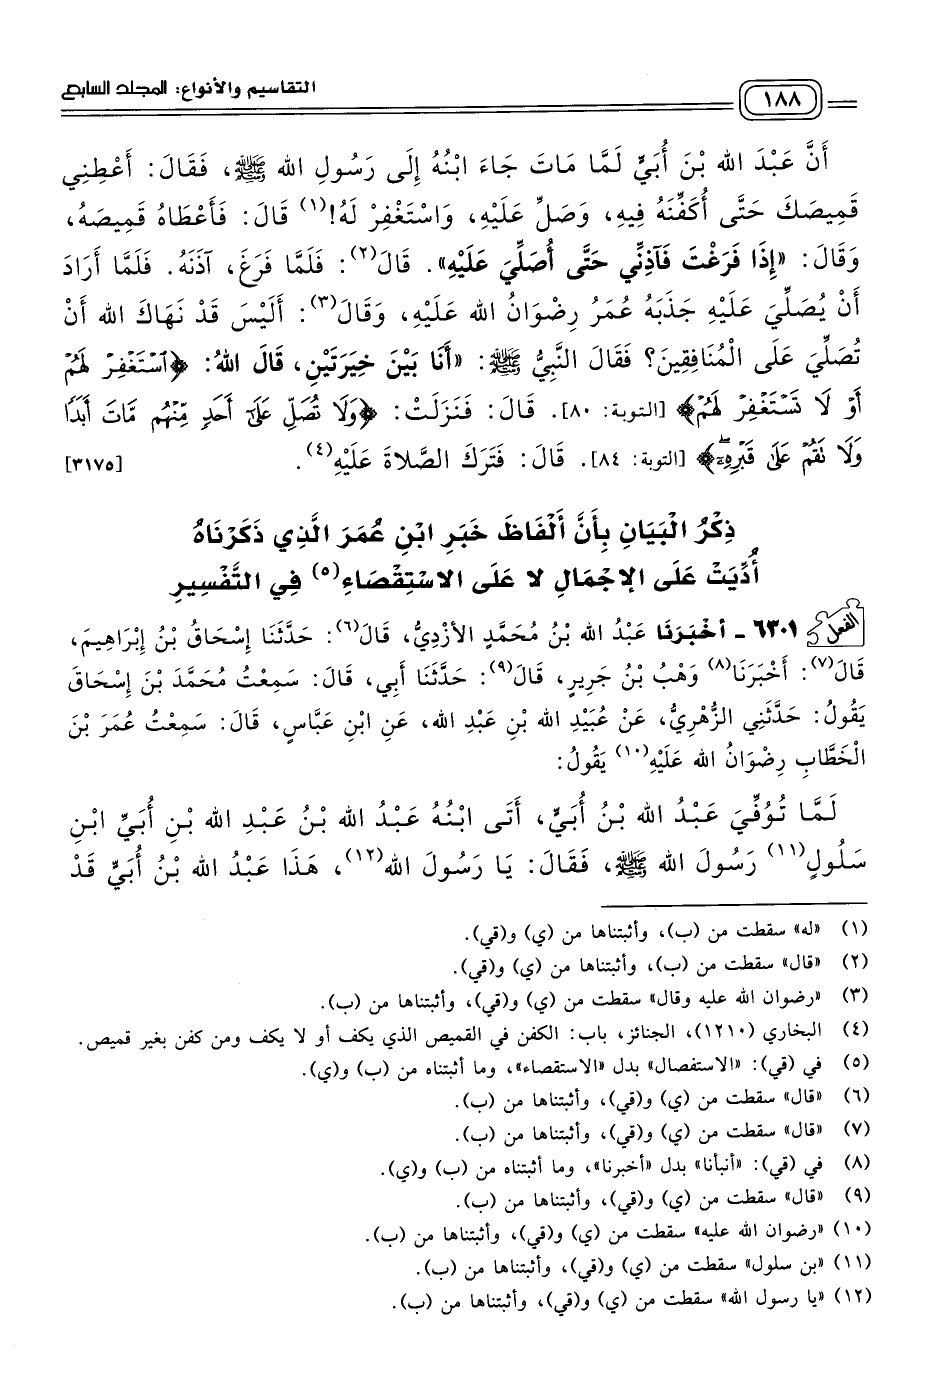 ١٨٨
التقاسيم والأنواع: المجلد السابع
أَنَّ عَبْدَ الله بْنَ أُبَيٍّ لَمَّا مَاتَ جَاءَ ابْنُهُ إِلَى رَسُولِ الله ﷺ، فَقَالَ: أَعْطِنِي
قَمِيصَكَ حَتَّى أُكَفِّنَهُ فِيهِ، وَصَلِّ عَلَيْهِ، وَاسْتَغْفِرْ لَهُ!(١) قَالَ: فَأَعْطَاهُ قَمِيصَهُ،
وَقَالَ: «إِذَا فَرَغْتَ فَآذِنِّي حَتَّى أُصَلِّيَ عَلَيْهِ». قَالَ(٢): فَلَمَّا فَرَغَ، آذَنَهُ. فَلَمَّا أَرَادَ
أَنْ يُصَلِّيَ عَلَيْهِ جَذَبَهُ عُمَرُ رِضْوَانُ الله عَلَيْهِ، وَقَالَ(٣): أَلَيْسَ قَدْ نَهَاكَ الله أَنْ
تُصَلِّيَ عَلَى الْمُنَافِقِينَ؟ فَقَالَ النَّبِيُّ ﷺ: «أَنَا بَيْنَ خِيَرَتَيْنِ، قَالَ اللهُ: ﴿ٱسۡتَغۡفِرۡ لَهُمۡ
أَوۡ لَا تَسۡتَغۡفِرۡ لَهُمۡ﴾ [التوبة: ٨٠]. قَالَ: فَنَزَلَتْ: ﴿وَلَا تُصَلِّ عَلَىٰٓ أَحَدٖ مِّنۡهُم مَّاتَ أَبَدٗا
وَلَا تَقُمۡ عَلَىٰ قَبۡرِهِۦٓۖ﴾ [التوبة: ٨٤]. قَالَ: فَتَرَكَ الصَّلاةَ عَلَيْهِ(٤). [٣١٧٥]
ذِكْرُ الْبَيَانِ بِأَنَّ أَلْفَاظَ خَبَرِ ابْنِ عُمَرَ الَّذِي ذَكَرْنَاهُ
أُدِّيَتْ عَلَى الإِجْمَالِ لا عَلَى الاسْتِقْصَاءِ(٥) فِي التَّفْسِيرِ
الفعل ٦٣٠١ - أَخْبَرَنَا عَبْدُ الله بْنُ مُحَمَّدٍ الأَزْدِيُّ، قَالَ(٦): حَدَّثَنَا إِسْحَاقُ بْنُ إِبْرَاهِيمَ،
قَالَ(٧): أَخْبَرَنَا(٨) وَهْبُ بْنُ جَرِيرٍ، قَالَ(٩): حَدَّثَنَا أَبِي، قَالَ: سَمِعْتُ مُحَمَّدَ بْنَ إِسْحَاقَ
يَقُولُ: حَدَّثَنِي الزُّهْرِيُّ، عَنْ عُبَيْدِ الله بْنِ عَبْدِ الله، عَنِ ابْنِ عَبَّاسٍ، قَالَ: سَمِعْتُ عُمَرَ بْنَ
الْخَطَّابِ رِضْوَانُ الله عَلَيْهِ(١٠) يَقُولُ:
لَمَّا تُوُفِّيَ عَبْدُ الله بْنُ أُبَيٍّ، أَتَى ابْنُهُ عَبْدُ الله بْنُ عَبْدِ الله بْنِ أُبَيٍّ ابْنِ
سَلُولٍ(١١) رَسُولَ الله ﷺ، فَقَالَ: يَا رَسُولَ الله(١٢)، هَذَا عَبْدُ الله بْنُ أُبَيٍّ قَدْ
(١) «له» سقطت من (ب)، وأثبتناها من (ي) و(قي).
(٢) «قال» سقطت من (ب)، وأثبتناها من (ي) و(قي).
(٣) «رضوان الله عليه وقال» سقطت من (ي) و(قي)، وأثبتناها من (ب).
(٤) البخاري (١٢١٠)، الجنائز، باب: الكفن في القميص الذي يكف أو لا يكف ومن كفن بغير قميص.
(٥) في (قي): «الاستفصال» بدل «الاستقصاء»، وما أثبتناه من (ب) و(ي).
(٦) «قال» سقطت من (ي) و(قي)، وأثبتناها من (ب).
(٧) «قال» سقطت من (ي) و(قي)، وأثبتناها من (ب).
(٨) في (قي): «أنبأنا» بدل «أخبرنا»، وما أثبتناه من (ب) و(ي).
(٩) «قال» سقطت من (ي) و(قي)، وأثبتناها من (ب).
(١٠) «رضوان الله عليه» سقطت من (ي) و(قي)، وأثبتناها من (ب).
(١١) «بن سلول» سقطت من (ي) و(قي)، وأثبتناها من (ب).
(١٢) «يا رسول الله» سقطت من (ي) و(قي)، وأثبتناها من (ب).